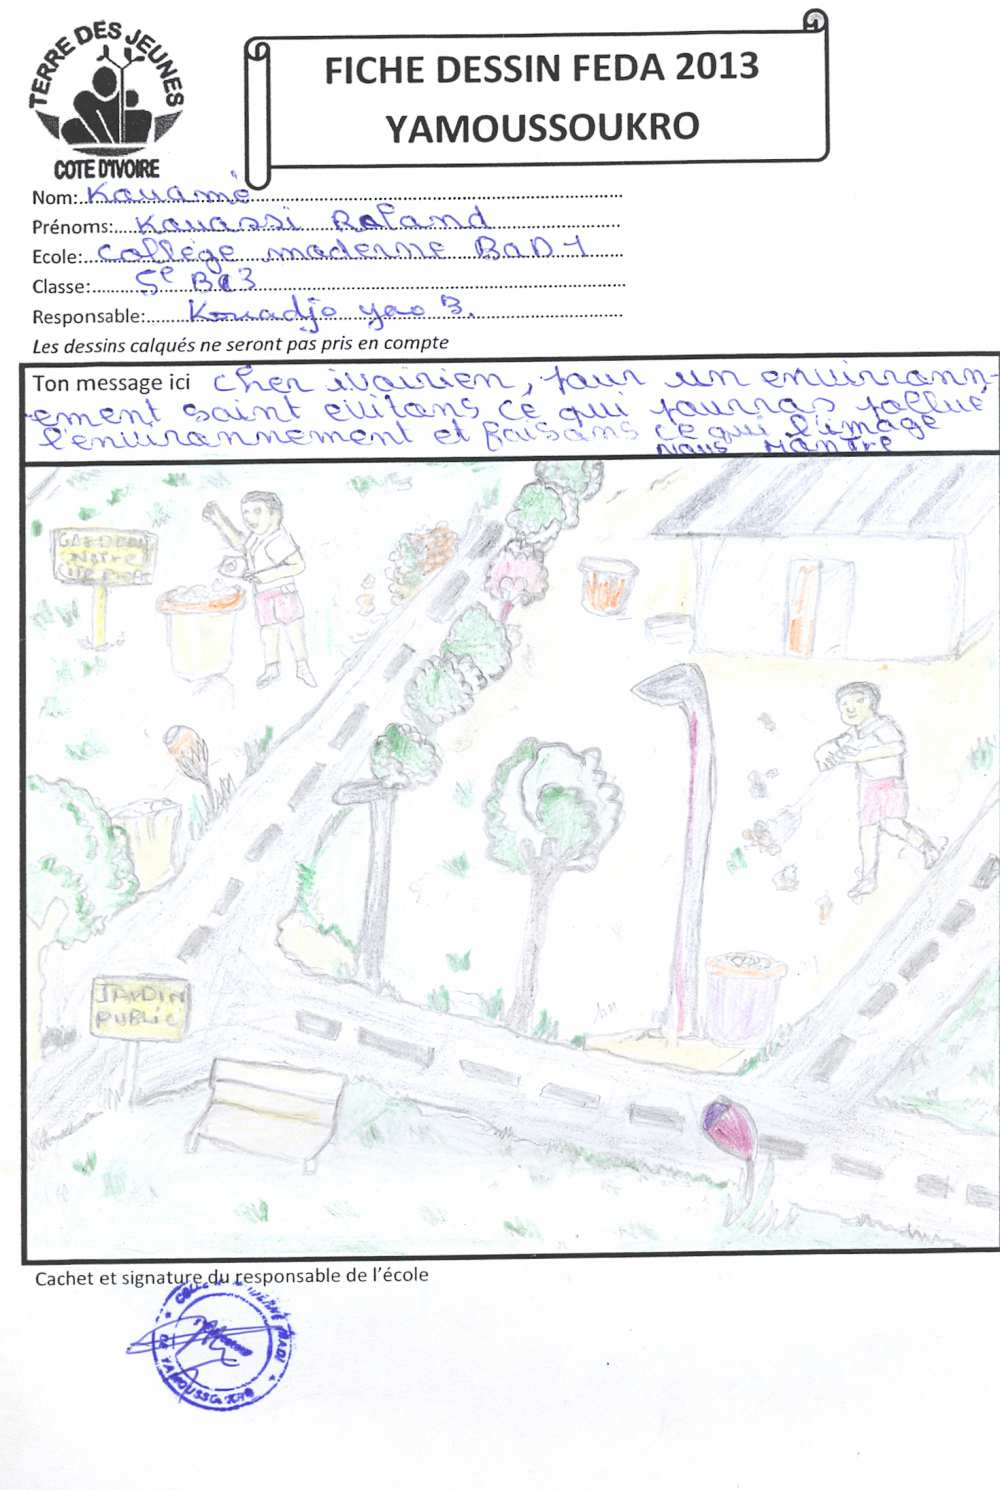 TERRE DES JEUNES
COTE D'IVOIRE
FICHE DESSIN FEDA 2013
YAMOUSSOUKRO
Nom: Kouamé
Prénoms: Kouassi Roland
Ecole: Collège moderne BAD 1
Classe: 5e B 3
Responsable: Kouadjo yao B.
Les dessins calqués ne seront pas pris en compte
Ton message ici cher ivoirien, pour un environn-
ement saint evitons ce qui pourras pollué
l'environnement et faisons ce qui l'image
nous mòntre
NOTRE
JARDIN
PUBLIC
Cachet et signature du responsable de l'école
YAMOUSSOUKRO